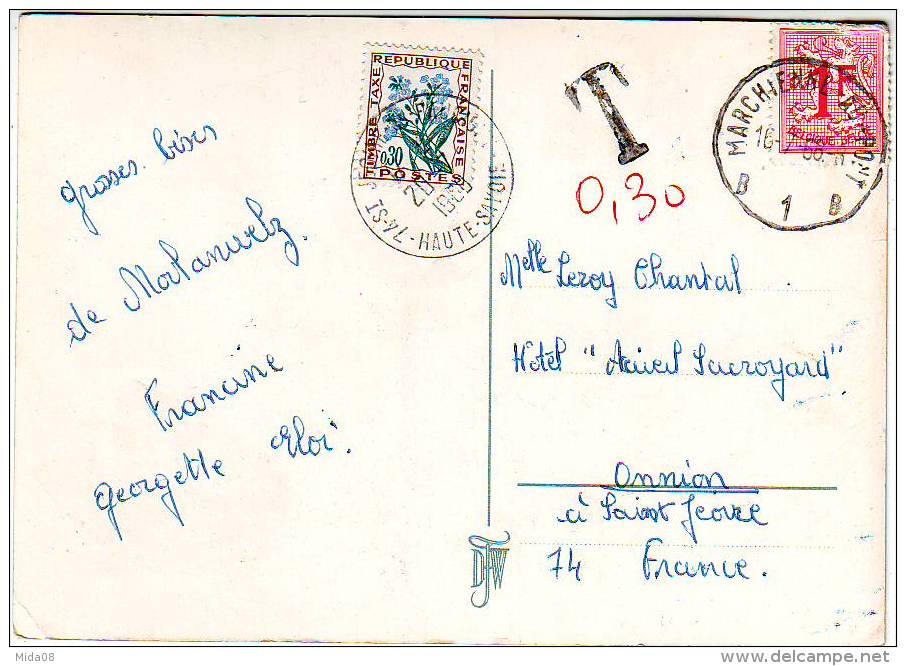 grosses bises
de Morlanwelz.
Francine
georgette Eloi.
REPUBLIQUE FRANÇAISE
TIMBRE TAXE
0,30
POSTES
74-ST
HAUTE-SAVOIE
T
0,30
1F
BELGIQUE
MARCHIENNE-AU-PONT
16
B 1 B
Melle Leroy Chantal
Hôtel "Acceuil Savoyard"
Onnion
à Saint Jeoire
74 France.
DFW
Mida08
www.delcampe.net